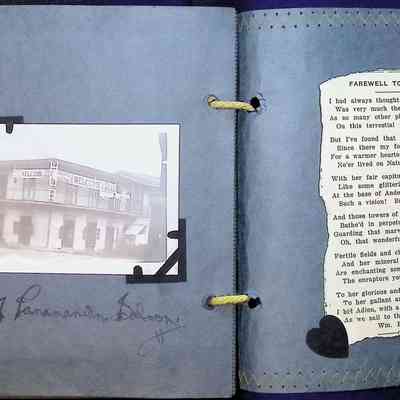 A Panamanian Saloon.
FAREWELL TO
I had always thought
Was very much the
As so many other pl
On this terrestial
But I've found that
Since there my fo
For a warmer hearte
Ne'er lived on Natu
With her fair capito
Like some glitteri
At the base of Ande
Such a vision! B
And those towers of
Bathe'd in perpetu
Guarding that mar
Oh, that wonderfu
Fertile fields and cl
And her mineral
Are enchanting som
The enrapture yo
To her glorious and
To her gallant a
I bid Adieu, with a
As we sail to th
Wm. E